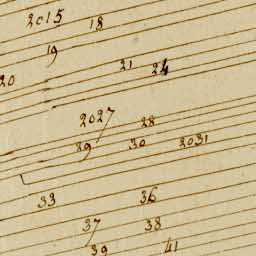 2015 18
19
20 21 24
2027 28
29 30 2031
33 36
37 38
39 41